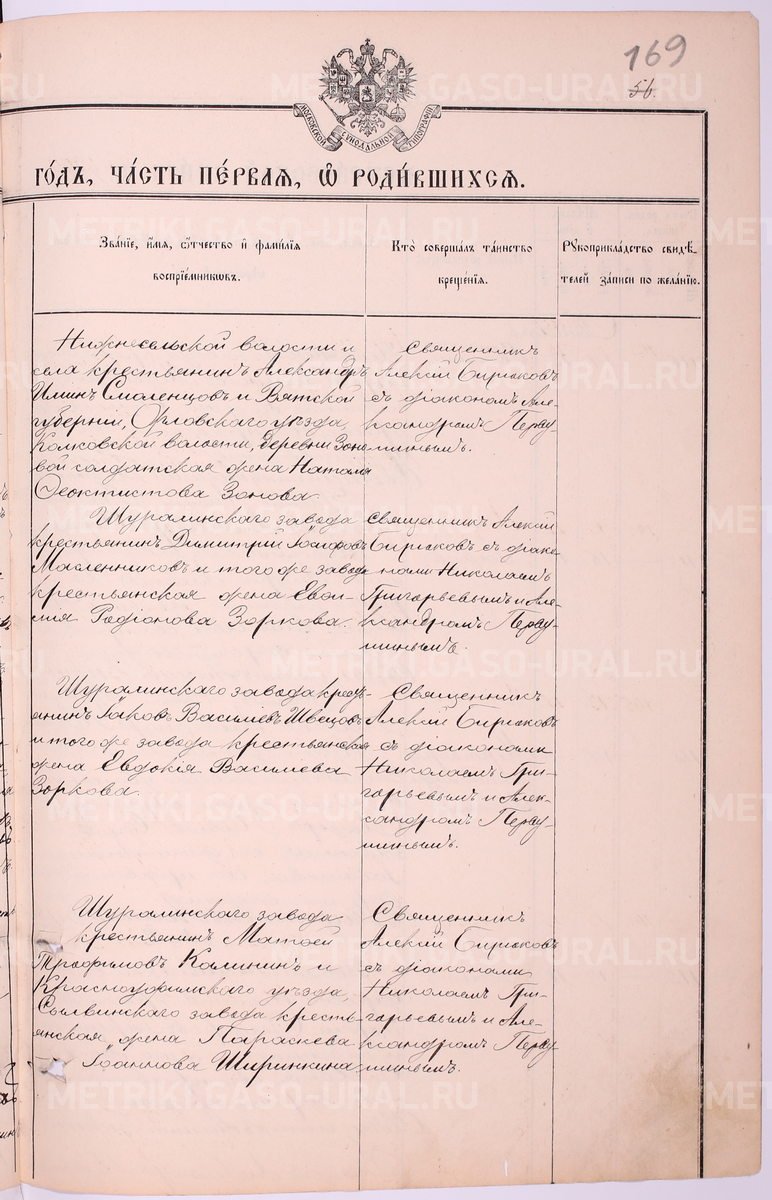 169
56.
МОСКОВСКОЙ СѴНОДАЛЬНОЙ ТИПОГРАФІИ
ГО́ДЪ, ЧА́СТЬ ПЕ́РВАЯ, Ѡ҆ РОДИ́ВШИХСЯ.
Зва́ніе, и҆́мя, ѻ҆́тчество и҆ фами́лія
воспріе́мниковъ.
Кто̀ соверша́лъ та́инство
креще́нія.
Рꙋкоприкла́дство свидѣ́-
телей за́писи по жела́нію.
Нижнесельской волости и
села крестьянинъ Александръ
Илiинъ Смоленцовъ и Вятской
губерніи, Орловскаго уѣзда,
Колковской волости, деревни Зоно-
вой солдатская жена Наталія
Ѳеоктистова Зонова.
Священникъ
Алексій Бирюковъ
съ діакономъ Але-
ксандромъ Перву-
шинымъ.
Шуралинскаго завода
крестьянинъ Димитрій Іосифовъ
Масленниковъ и того же завода
крестьянская жена Евѳи-
мія Радіонова Зоркова.
Священникъ Алексій
Бирюковъ съ діако-
нами Николаемъ
Григорьевымъ и Але-
ксандромъ Перву-
шинымъ.
Шуралинскаго завода кресть-
янинъ Іаковъ Василіевъ Швецовъ
и того же завода крестьянская
жена Евдокія Василіева
Зоркова.
Священникъ
Алексій Бирюковъ
съ діаконами
Николаемъ Гри-
горьевымъ и Алек-
сандромъ Перву-
шинымъ.
Шуралинскаго завода
крестьянинъ Матѳей
Трофимовъ Калининъ и
Красноуфимскаго уѣзда,
Сылвинскаго завода кресть-
янская жена Параскева
Іоаннова Ширинкина.
Священникъ
Алексій Бирюковъ
съ діаконами
Николаемъ Гри-
горьевымъ и Але-
ксандромъ Перву-
шинымъ.
METRIKI.GASO-URAL.RU